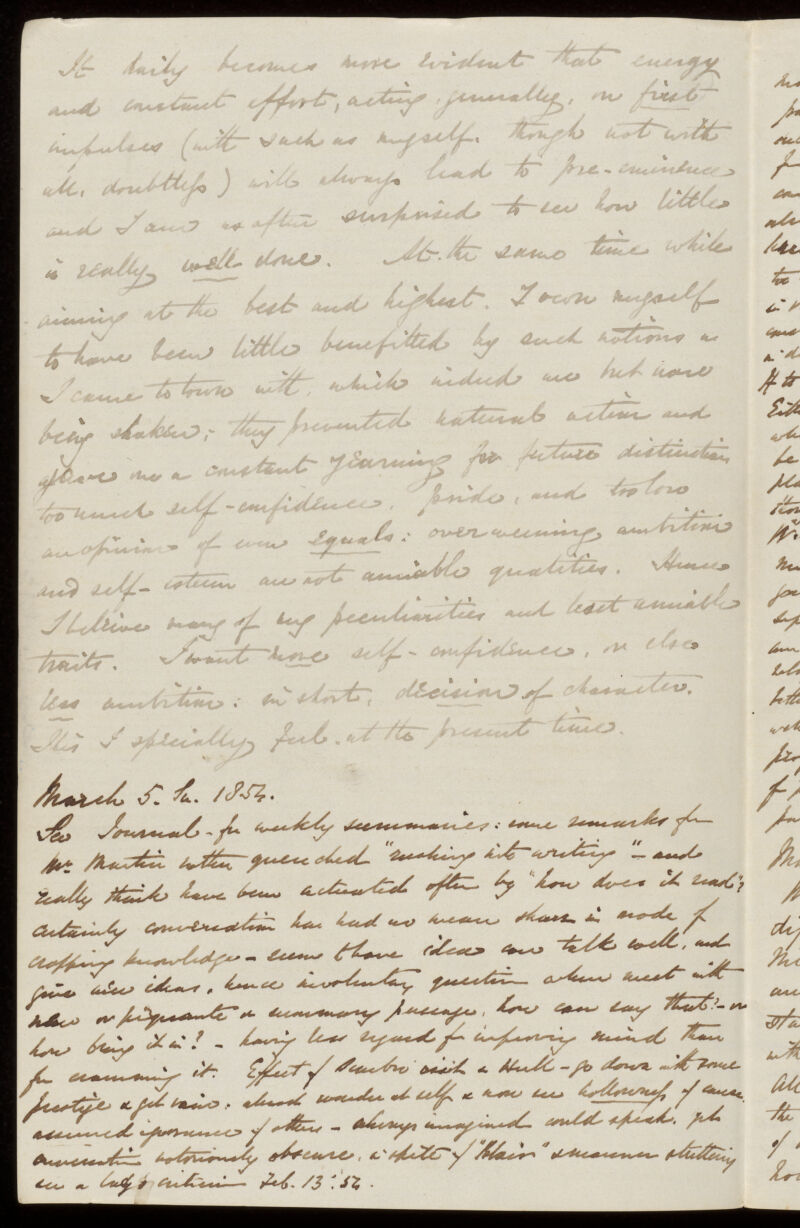 It daily becomes more evident that energy
and constant effort, acting, generally, on first
impulses (with such as myself. though not with
all, doubtless) will always lead to pre-eminence
and I am as often surprised to see how little
is really well done. At the same time while
aiming at the best and highest. I own myself
to have been little benefitted by such notions as
I came to town with, which indeed are but now
being shaken; they prevented natural action and
gave me a constant yearning for future distinction
too much self-confidence, pride, and too low
an opinion of even equals: overweening ambition
and self-esteem are not amiable qualities. Hence
I believe many of my peculiarities and least amiable
traits. I want more self-confidence, or else
less ambition: in short, decision of character.
This I specially feel at the present time.
March 5. Su. 1854.
See Journal - for weekly summaries: some remarks fr
Mr. Martin rather quenched "rushing into writing" - and
really think have been actuated often by "how does it read"?
certainly conversation has had no mean share in mode of
cropping knowledge - seem t'have idea can talk well, and
give nice ideas, hence involuntary question when meet with
new or piquante or summary passage, how can say that? - or
how bring it in? - having less regard for improving mind than
for cramming it. Effect of visit a Hull - go down with some
prestige & get vain: almost wonder at self & now see hollowness of
assumed ignorance of others - always imagined could speak, yet
conversation notoriously obscure, in spite of "Blair" & manner
see a criticism Feb. 13. 54.